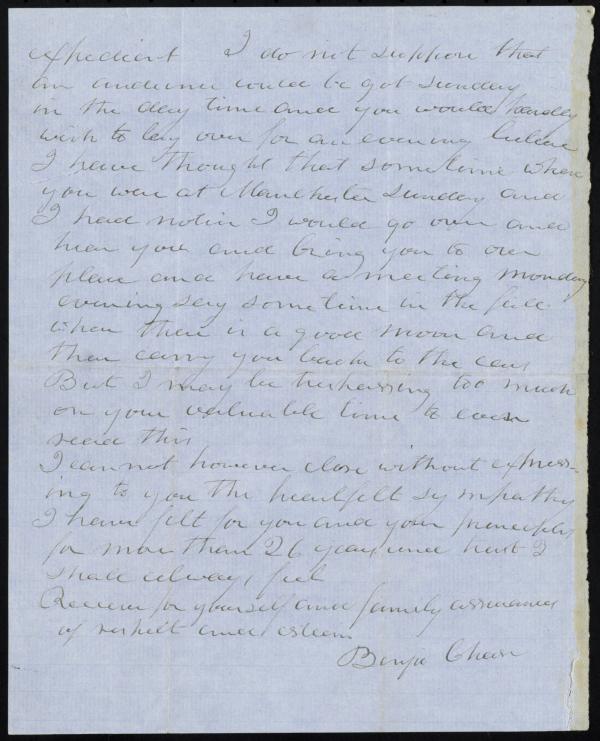 expedient I do not suppose that
an audience could be got sunday
in the day time and you would hardly
wish to lay over for an evening lecture
I have thought that some time when
you were at Manchester sunday and
I had notice I would go over and
hear you and bring you to our
place and have a meeting monday
evening say sometime in the fall
when there is a good moon and
then carry you back to the cars
But I may be trespassing too much
on your valuable time to even
read this
I can not however close without express-
ing to you the heartfelt sympathy
I have felt for you and your principles
for more than 26 years and trust I
shall always feel
Receive for yourself and family assurances
of respect and esteem
Benja Chase